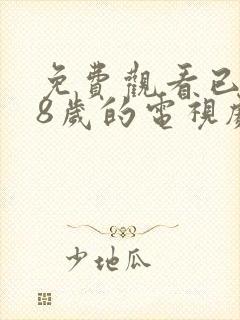 免費觀看已
8歲的電視劇
少地瓜